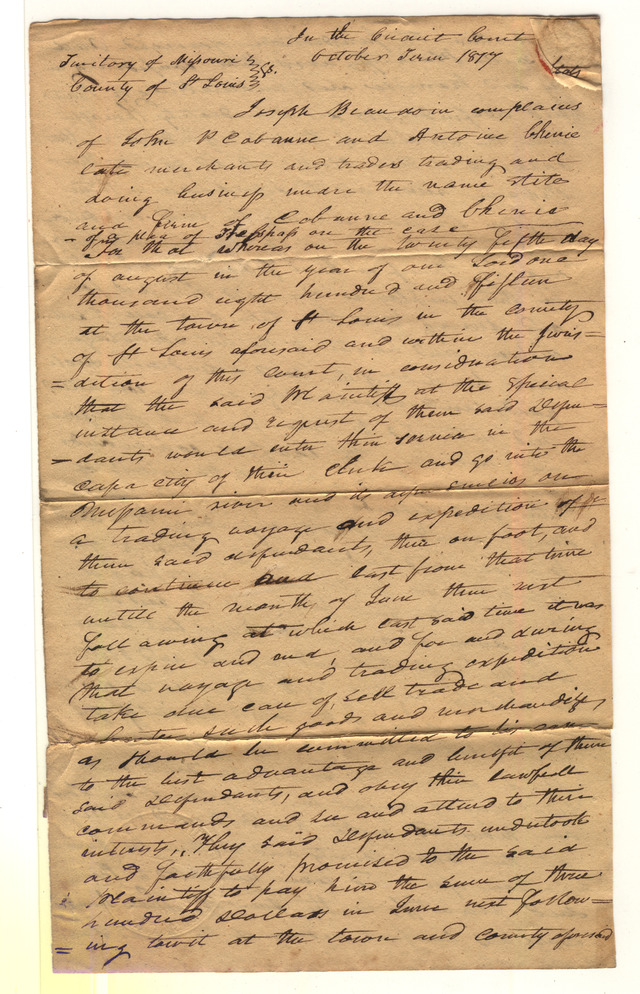 In the Circuit Court
October Term 1817
Territory of Missouri
County of St Louis } Ss.
Joseph Beaudoin complains
of John P Cabanne and Antoine Chenie
late merchants and traders trading and
doing business under the name stile
and firm of Cabanne and Chenie
- of a plea of trespass on the case
For that whereas on the twenty fifth day
of august in the year of our Lord one
thousand eight hundred and fifteen
at the town of St Louis in the county
of St Louis aforesaid and within the juris=
=diction of this court, in consideration
that the said Plaintiff at the special
instance and request of them said defen=
=dants would enter their service in the
capacity of their clerk and go into the
Missouri river and its on
a trading voyage and expedition of
them said defendants, then on foot, and
to continue and last from that time
untill the month of June then next
following at which last said time it was
to expire and end, and for and during
that voyage and trading expedition
take due care of, sell trade and
barter such goods and merchandise
as should be committed to his care
to the best advantage and benefit of them
said defendants, and obey their lawfull
commands and see and attend to their
interests, They said defendants undertook
and faithfully promised to the said
Plaintiff to pay him the sum of three
hundred Dollars in June next follow=
=ing towit at the town and county aforesaid